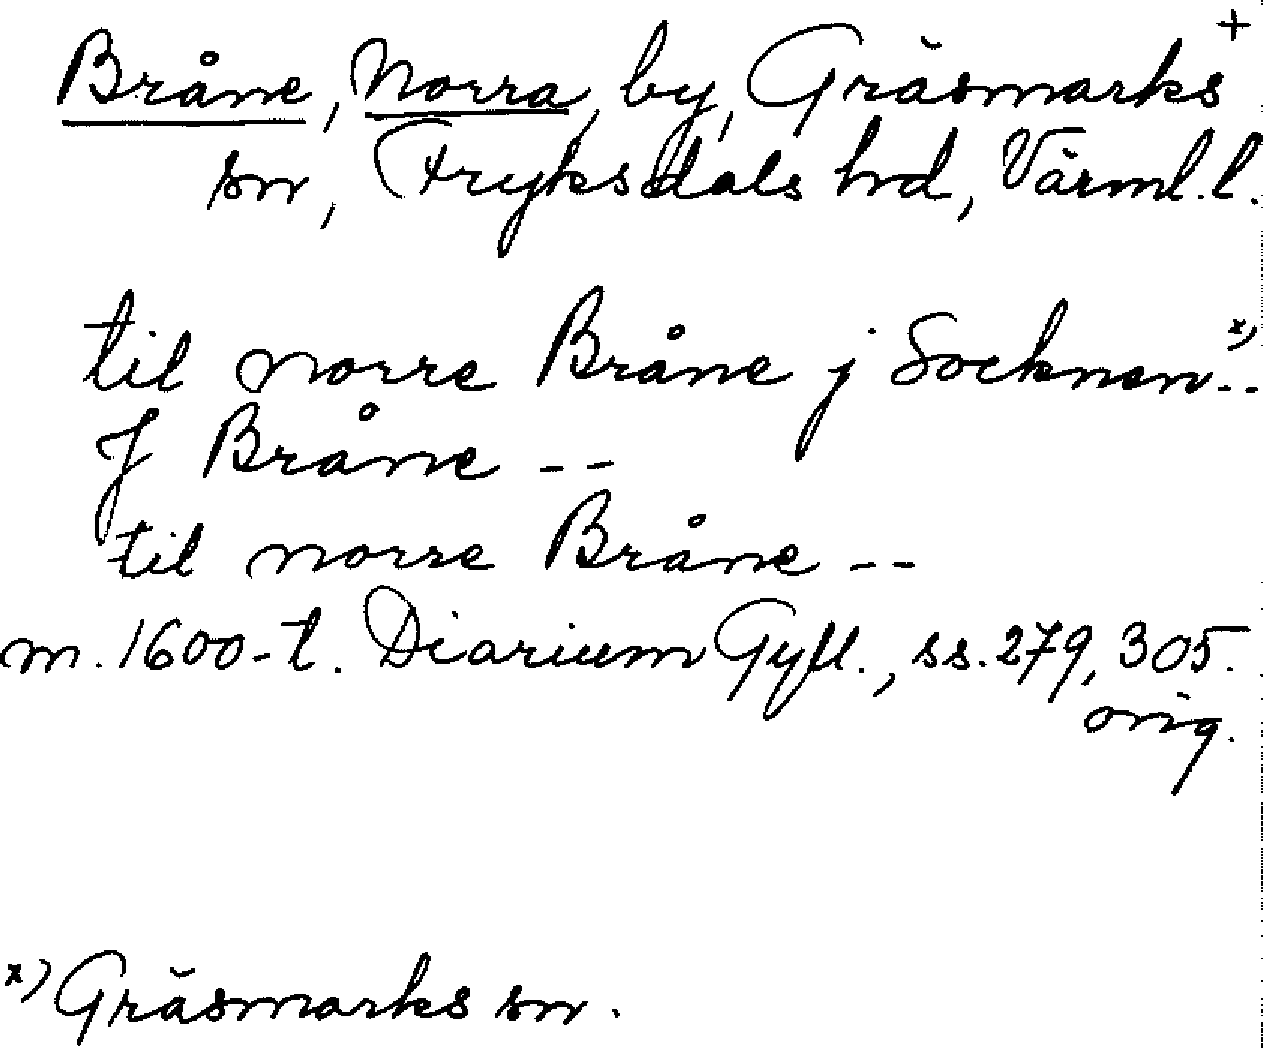 Bråne, Norra, by, Gräsmarks +
sn, Fryksdals hrd, Värml. l.
til norre Bråne j Socknen x) --
J Bråne --
til norre Bråne --
m. 1600-t. Diarium Gyll., ss. 279, 305.
orig.
x) Gräsmarks sn.